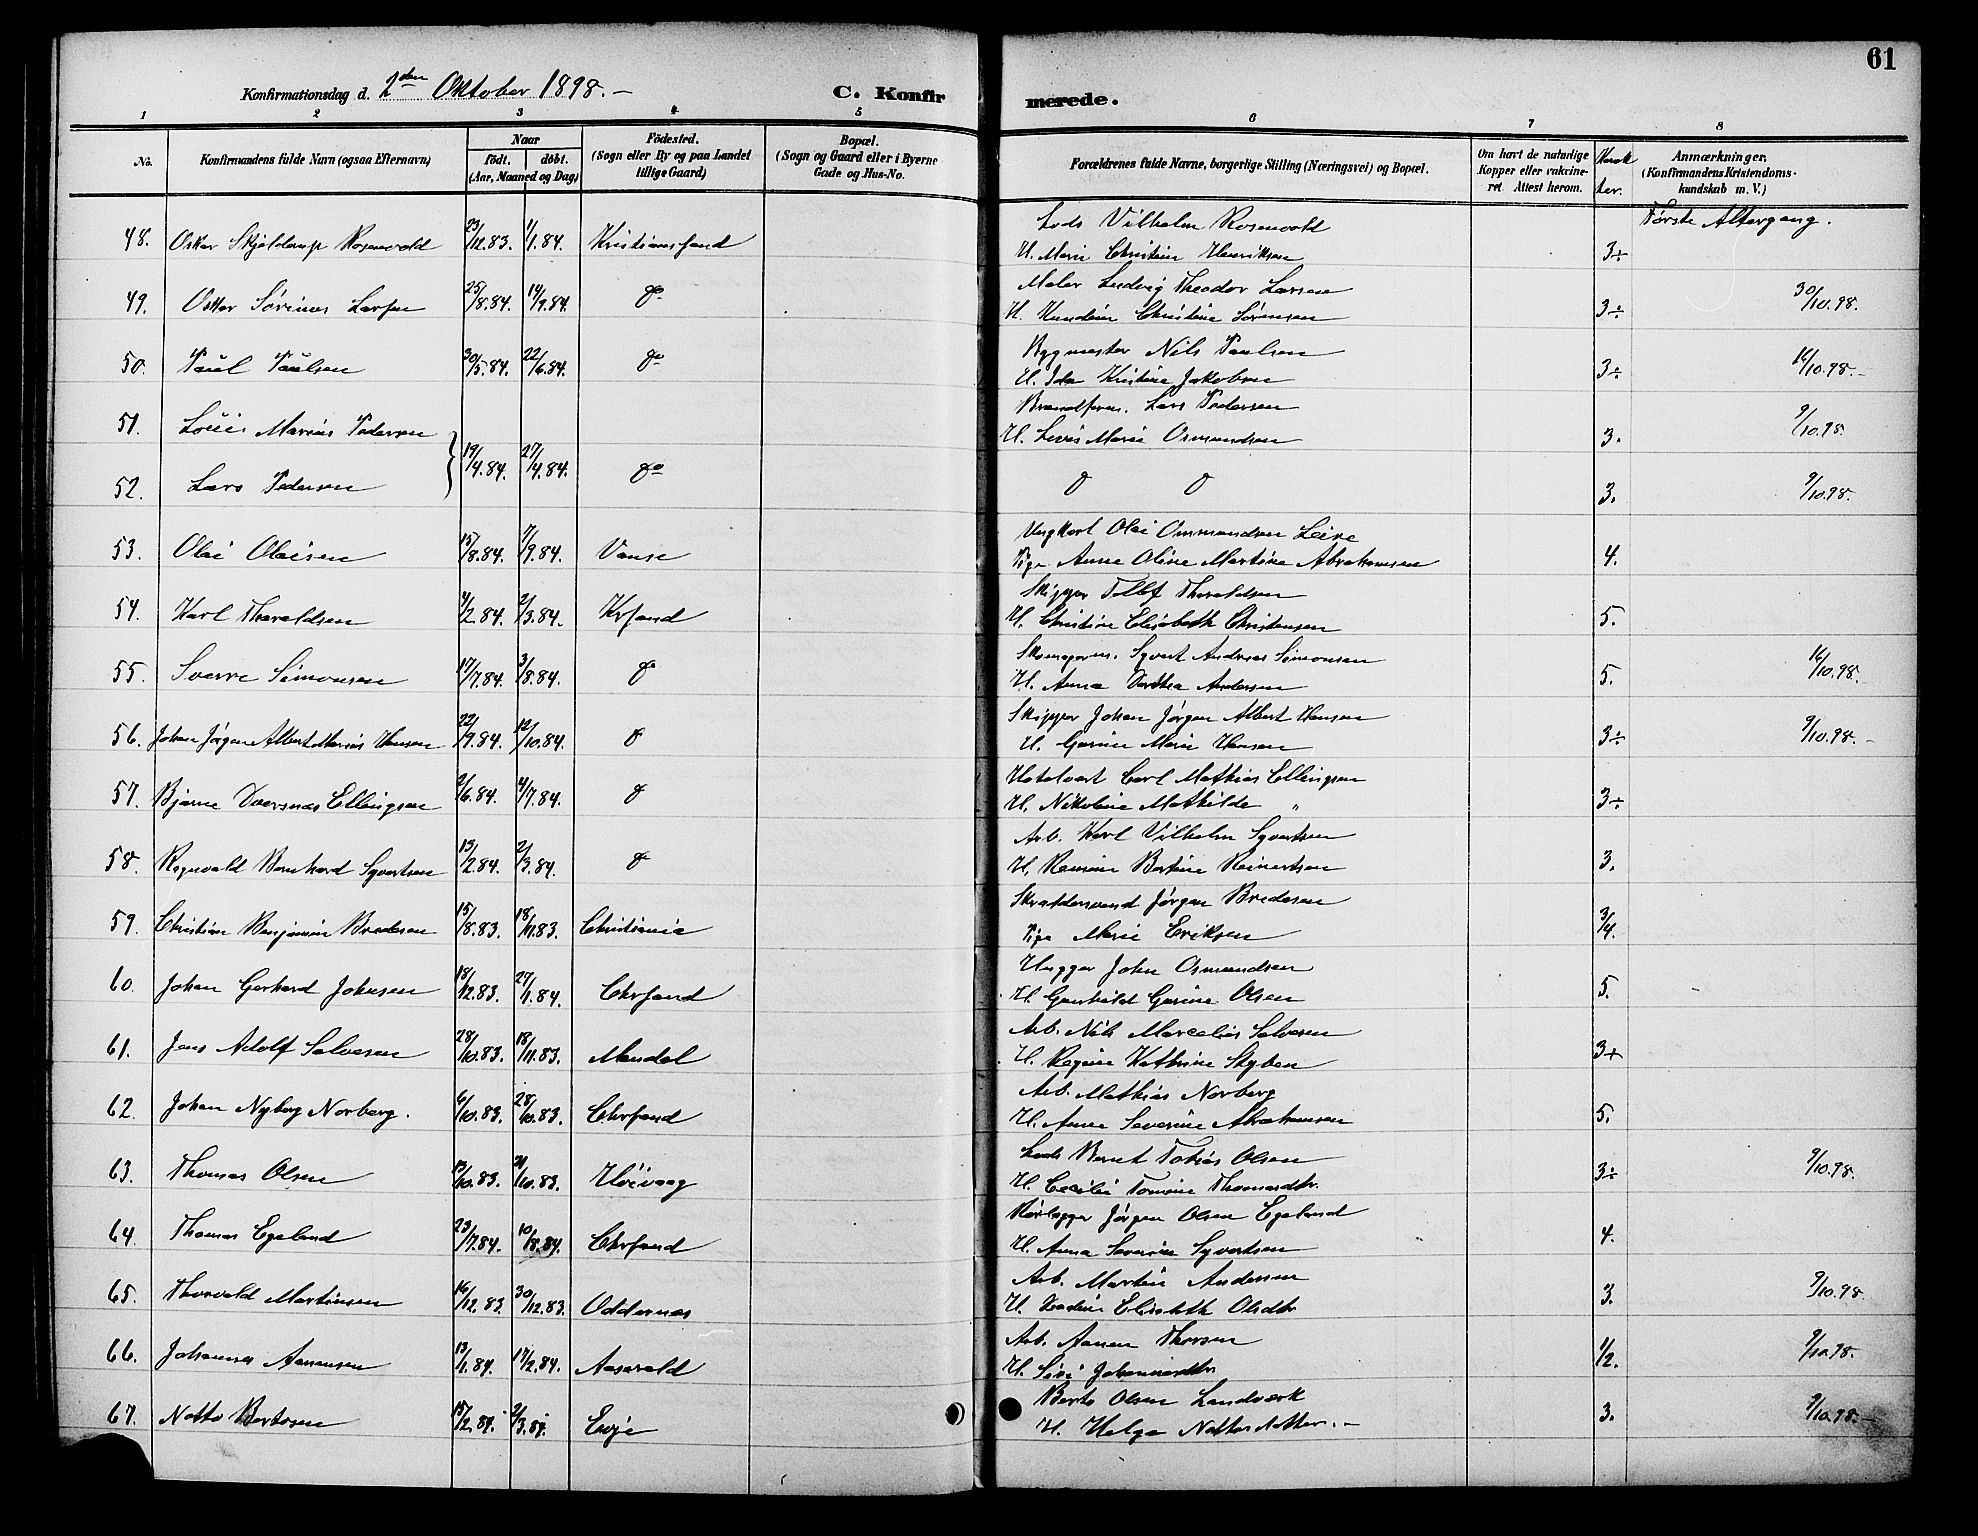 61
Konfirmationsdag d. 2den Oktober 1898.-
C. Konfirmerede.
1 2 3 4 5 6 7 8
No.
Konfirmandens fulde Navn (ogsaa Efternavn)
Naar
født. døbt.
(Aar, Maaned og Dag)
Fødested.
(Sogn eller By og paa Landet
tillige Gaard)
Bopæl.
(Sogn og Gaard eller i Byerne
Gade og Hus-No.
Forældrenes fulde Navne, borgerlige Stilling (Næringsvei) og Bopæl.
Om havt de naturlige
Kopper eller vakcine-
ret. Attest herom.
Karakter.
Anmærkninger.
(Konfirmandens Kristendoms-
kundskab m. V.)
Første Altergang.
48. Oskar Skjelderup Rosenvold 23/12.83. 1/1.84. Kristianssand Lods Vilhelm Rosenvold
H. Marie Christine Henriksen 3÷
49. Oskar Sørinus Larsen 25/8.84. 14/9.84. do Maler Ludvig Theodor Larsen
H. Christine Sørensen 3÷ 30/10.98.
50. Paul Paulsen 30/5.84. 22/6.84. do Bygmester Nils Paulsen
H. Ida Kristine Jakobsen 3÷ 16/10.98.-
51. Louis Marius Pedersen 19/4.84. 27/4.84. do Lars Pedersen
H. Marie Osmundsen 3. 9/10.98.
52. Lars Pedersen 3. 9/10.98.
53. Olai Olaisen 15/8.84. 7/9.84. Vanse Ungkarl Olai Ommundsen Leire
Pige Anne Oline Martine Abrahamsen 4.
54. Karl Thoraldsen 4/2.84. 2/3.84. Krsand Skipper Tollef Thoraldsen
H. Christine Elisabeth Christensen 5.
55. Sverre Simonsen 17/7.84. 3/8.84. do Syvert Andreas Simonsen
H. Anna Dorthea Andersen 5. 16/10.98.-
56. Johan Jørgen Albert Marius Hansen 22/9.84. 12/10.84. do Skipper Johan Jørgen Albert Hansen
H. Gurine Marie Hansen 3÷ 9/10.98.-
57. Bjarne Ellingsen 2/6.84. 4/7.84. do Hotelvært Carl Mathias Ellingsen
H. Nikoline Mathilde " 3÷
58. Ragnvald Bernhard Syvertsen 13/2.84. 2/3.84. do Arb. Karl Vilhelm Syvertsen
H. Bertine Reinertsen 3.
59. Christian Benjamin Bredesen 15/8.83. 18/11.83. Christiania Skræddersvend Jørgen Bredesen
Pige Marie Eriksen 3/4.
60. Johan Gerhard Johnsen 18/12.83. 27/1.84. Chrsand John Osmundsen
H. Gunhild Gurine Olsen 5.
61. Jens Adolf Salvesen 28/10.83. 18/11.83. Mandal Arb. Nils Marcelius Salvesen
H. Regine Kathrine 3+
62. Johan Nyberg Norberg. 6/10.83. 28/10.83. Chrsand Arb. Mathias Norberg
H. Anne Severine Abrahamsen 5.
63. Thomas Olsen 13/10.83. 21/10.83. Høivaag Lods Bernt Tobias Olsen
H. Cecilie Tomine Thomasdtr. 3÷ 9/10.98.
64. Thomas Egeland 23/7.84. 10/8.84. Chrsand Rørlægger Jørgen Olsen Egeland
H. Anna Severine Syvertsen 4.
65. Thorvald Martinsen 16/12.83. 30/12.83. Oddernæs Arb. Martin Andersen
H. Elisabeth Olsdtr 3. 9/10.98.
66. Johannes Aanensen 13/1.84. 17/2.84. Aaseral Arb. Aanen Thorsen
H. Siri Johannesdtr 1/2. 9/10.98.
67. Notto Bertosen 15/2.84. 2/3.84. Evje Berto Olsen Landværk
H. Helga Nottosdatter.- 3. 9/10.98.-